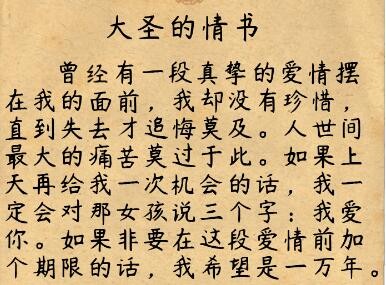 大圣的情书
曾经有一段真挚的爱情摆
在我的面前，我却没有珍惜，
直到失去才追悔莫及。人世间
最大的痛苦莫过于此。如果上
天再给我一次机会的话，我一
定会对那女孩说三个字：我爱
你。如果非要在这段爱情前加
个期限的话，我希望是一万年。